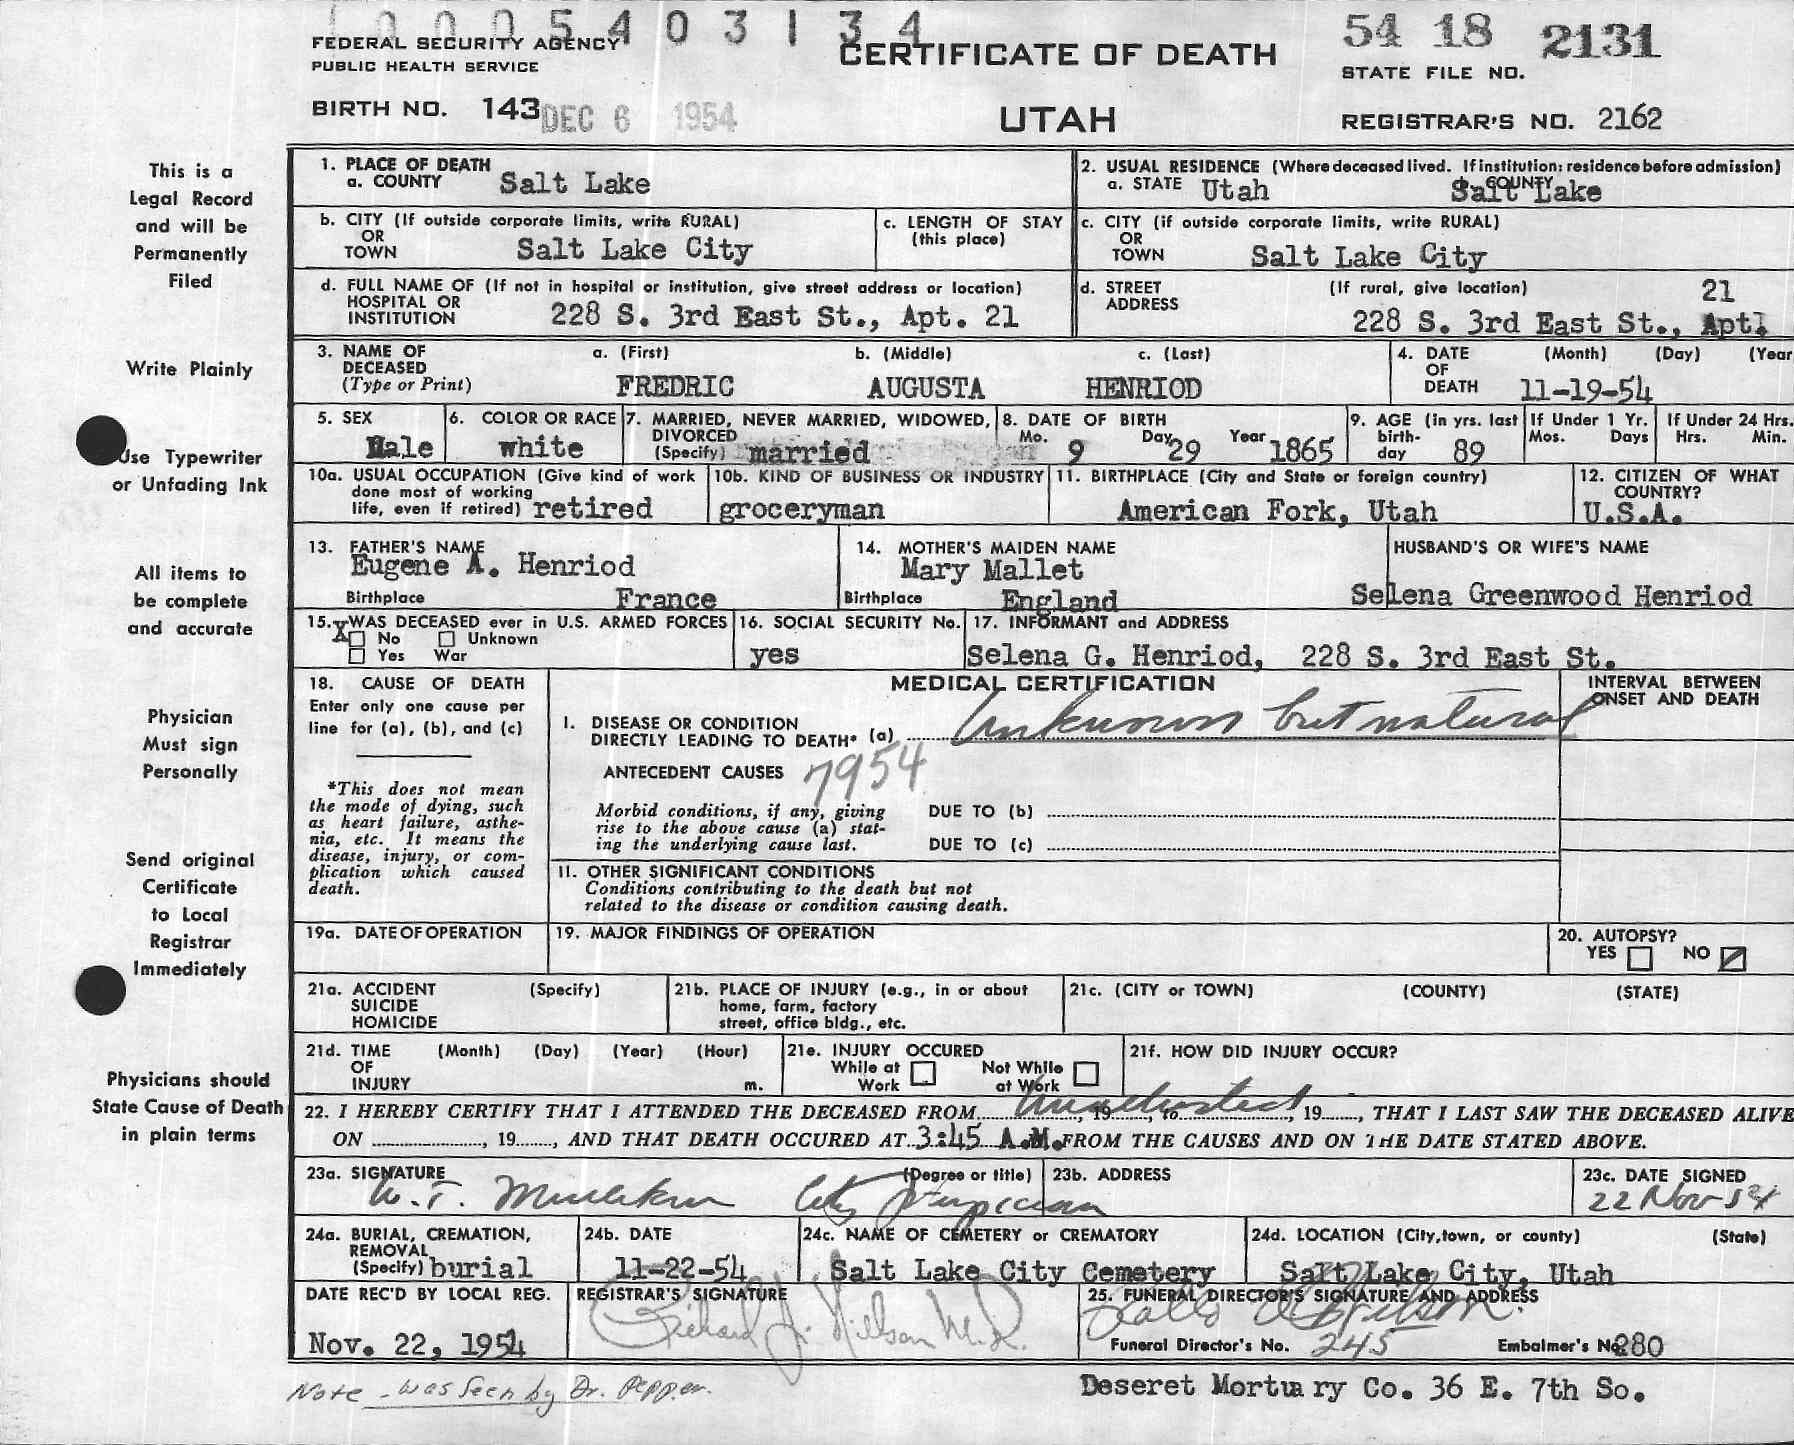 10005403134
FEDERAL SECURITY AGENCY
PUBLIC HEALTH SERVICE
CERTIFICATE OF DEATH
54 18 2131
STATE FILE NO.
BIRTH NO. 143 DEC 6 1954
UTAH
REGISTRAR'S NO. 2162
This is a
Legal Record
and will be
Permanently
Filed
Write Plainly
Use Typewriter
or Unfading Ink
All items to
be complete
and accurate
Physician
Must sign
Personally
Send original
Certificate
to Local
Registrar
Immediately
Physicians should
State Cause of Death
in plain terms
1. PLACE OF DEATH
a. COUNTY Salt Lake
2. USUAL RESIDENCE (Where deceased lived. If institution: residence before admission)
a. STATE Utah b. COUNTY Salt Lake
b. CITY (If outside corporate limits, write RURAL)
OR
TOWN Salt Lake City
c. LENGTH OF STAY
(this place)
c. CITY (if outside corporate limits, write RURAL)
OR
TOWN Salt Lake City
d. FULL NAME OF (If not in hospital or institution, give street address or location)
HOSPITAL OR
INSTITUTION 228 S. 3rd East St., Apt. 21
d. STREET (If rural, give location) 21
ADDRESS 228 S. 3rd East St., Apt.
3. NAME OF a. (First) b. (Middle) c. (Last)
DECEASED
(Type or Print) FREDRIC AUGUSTA HENRIOD
4. DATE (Month) (Day) (Year
OF
DEATH 11-19-54
5. SEX
Male
6. COLOR OR RACE
white
7. MARRIED, NEVER MARRIED, WIDOWED,
DIVORCED
(Specify) married
8. DATE OF BIRTH
Mo. 9 Day 29 Year 1865
9. AGE (in yrs. last
birth-
day 89
If Under 1 Yr.
Mos. Days
If Under 24 Hrs.
Hrs. Min.
10a. USUAL OCCUPATION (Give kind of work
done most of working
life, even if retired) retired
10b. KIND OF BUSINESS OR INDUSTRY
groceryman
11. BIRTHPLACE (City and State or foreign country)
American Fork, Utah
12. CITIZEN OF WHAT
COUNTRY?
U.S.A.
13. FATHER'S NAME
Eugene A. Henriod
Birthplace France
14. MOTHER'S MAIDEN NAME
Mary Mallet
Birthplace England
HUSBAND'S OR WIFE'S NAME
Selena Greenwood Henriod
15. WAS DECEASED ever in U.S. ARMED FORCES
X No Unknown
Yes War
16. SOCIAL SECURITY No.
yes
17. INFORMANT and ADDRESS
Selena G. Henriod, 228 S. 3rd East St.
18. CAUSE OF DEATH
Enter only one cause per
line for (a), (b), and (c)
*This does not mean
the mode of dying, such
as heart failure, asthe-
nia, etc. It means the
disease, injury, or com-
plication which caused
death.
MEDICAL CERTIFICATION
INTERVAL BETWEEN
ONSET AND DEATH
I. DISEASE OR CONDITION
DIRECTLY LEADING TO DEATH* (a) Unknown but natural
ANTECEDENT CAUSES 7954
Morbid conditions, if any, giving
rise to the above cause (a) stat-
ing the underlying cause last.
DUE TO (b)
DUE TO (c)
II. OTHER SIGNIFICANT CONDITIONS
Conditions contributing to the death but not
related to the disease or condition causing death.
19a. DATE OF OPERATION
19. MAJOR FINDINGS OF OPERATION
20. AUTOPSY?
YES NO
21a. ACCIDENT (Specify)
SUICIDE
HOMICIDE
21b. PLACE OF INJURY (e.g., in or about
home, farm, factory
street, office bldg., etc.
21c. (CITY or TOWN) (COUNTY) (STATE)
21d. TIME (Month) (Day) (Year) (Hour)
OF
INJURY m.
21e. INJURY OCCURED
While at Work Not While at Work
21f. HOW DID INJURY OCCUR?
22. I HEREBY CERTIFY THAT I ATTENDED THE DECEASED FROM Unattended, 19, to, 19, THAT I LAST SAW THE DECEASED ALIVE
ON, 19, AND THAT DEATH OCCURED AT 3:45 A.M. FROM THE CAUSES AND ON THE DATE STATED ABOVE.
23a. SIGNATURE (Degree or title)
W. T. City Physician
23b. ADDRESS
23c. DATE SIGNED
22 Nov 54
24a. BURIAL, CREMATION,
REMOVAL
(Specify) burial
24b. DATE
11-22-54
24c. NAME OF CEMETERY or CREMATORY
Salt Lake City Cemetery
24d. LOCATION (City, town, or county) (State)
Salt Lake City, Utah
DATE REC'D BY LOCAL REG.
Nov. 22, 1954
REGISTRAR'S SIGNATURE
Richard J. Nielson M.D.
25. FUNERAL DIRECTOR'S SIGNATURE AND ADDRESS
Funeral Director's No. 245 Embalmer's No. 280
Note - was seen by Dr. Pepper.
Deseret Mortuary Co. 36 E. 7th So.